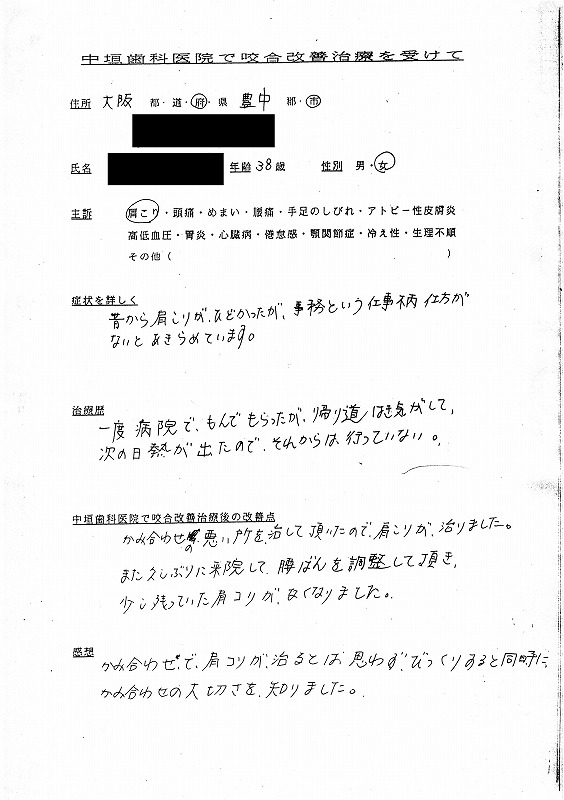 中垣歯科医院で咬合改善治療を受けて
住所 大阪 都・道・府・県 豊中 郡・市
氏名 年齢 38歳 性別 男・女
主訴 肩こり・頭痛・めまい・腰痛・手足のしびれ・アトピー性皮膚炎
高低血圧・胃炎・心臓病・倦怠感・顎関節症・冷え性・生理不順
その他( )
症状を詳しく
昔から肩こりが、ひどかったが、事務という仕事柄 仕方が
ないと あきらめています。
治療歴
一度 病院で、もんで もらったが、帰り道 はき気がして、
次の日 熱が 出たので、それからは 行っていない。
中垣歯科医院で咬合改善治療後の改善点
かみ合わせの 悪い所を、治して 頂いたので、肩こりが、治りました。
また 久しぶりに 来院して、腰ばんを 調整して 頂き、
少し 残っていた 肩コリが、なくなりました。
感想
かみ合わせで、肩コリが、治るとは 思わず、びっくりすると同時に、
かみ合わせの 大切さを、知りました。